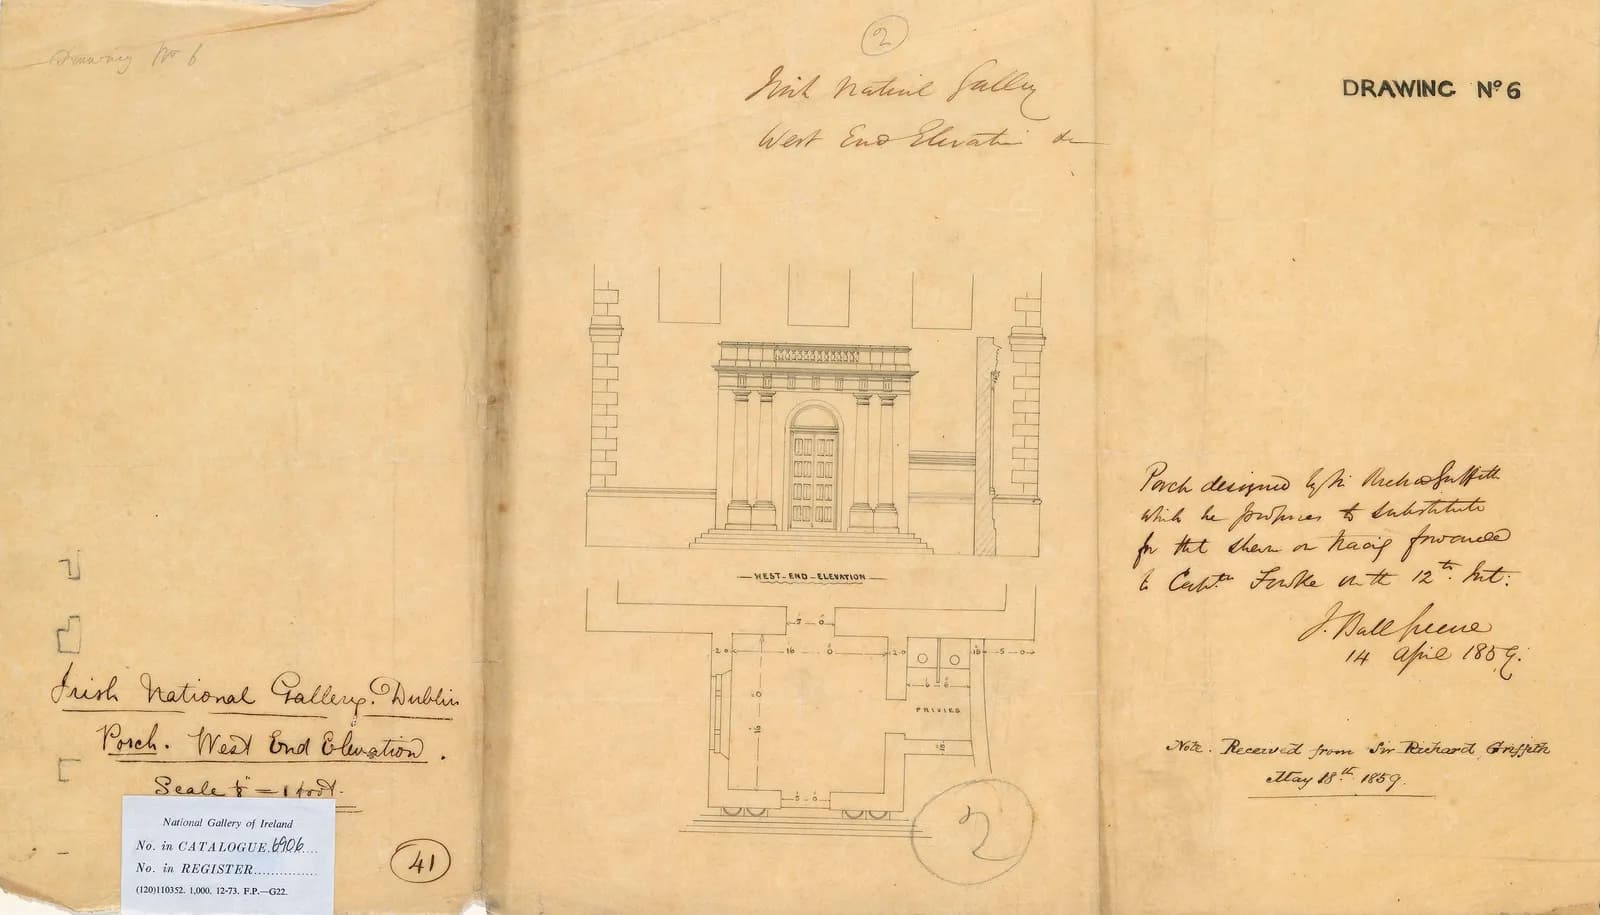 Drawing No 6
2
Irish National Gallery
West End Elevation &c
DRAWING Nº 6
WEST-END-ELEVATION
5 0
2 0
16 0
2 0
5 0
6 6
PRIVIES
5 0
2
Porch designed by Sir Richd Griffith
which he proposes to substitute
for that shewn on tracing forwarded
to Captn Fowke on the 12th Inst:
J. Ball Greene
14 April 1859.
Note. Received from Sir Richard Griffith
May 18th 1859.
Irish National Gallery. Dublin
Porch. West End Elevation.
Scale ⅛" = 1 foot.
National Gallery of Ireland
No. in CATALOGUE 6906
No. in REGISTER
(120)110352. 1,000. 12-73. F.P.—G22.
41